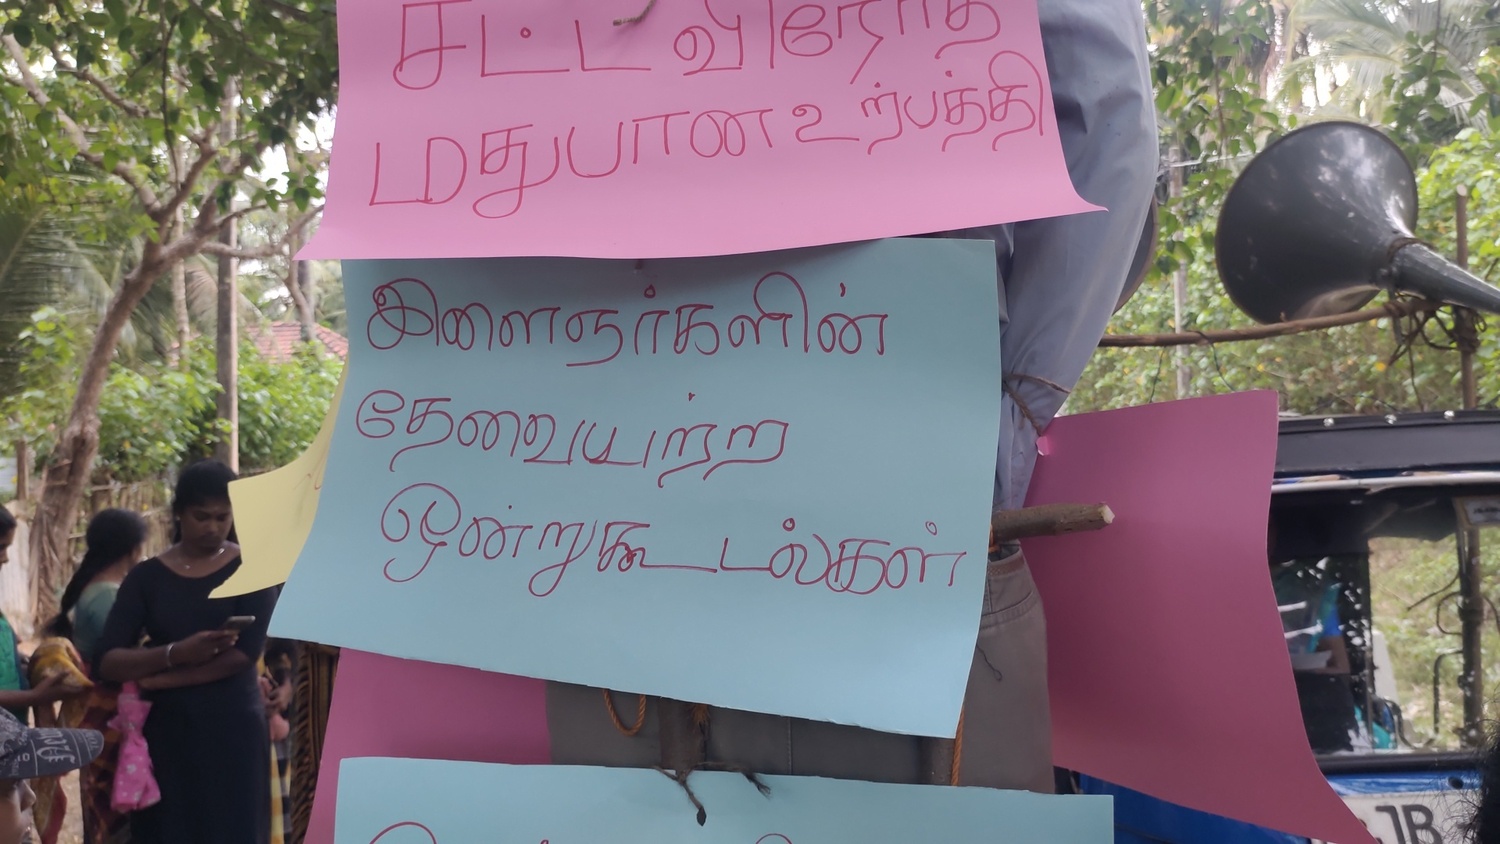 சட்டவிரோத
மதுபான உற்பத்தி
இளைஞர்களின்
தேவையற்ற
ஒன்றுகூடல்கள்
JB